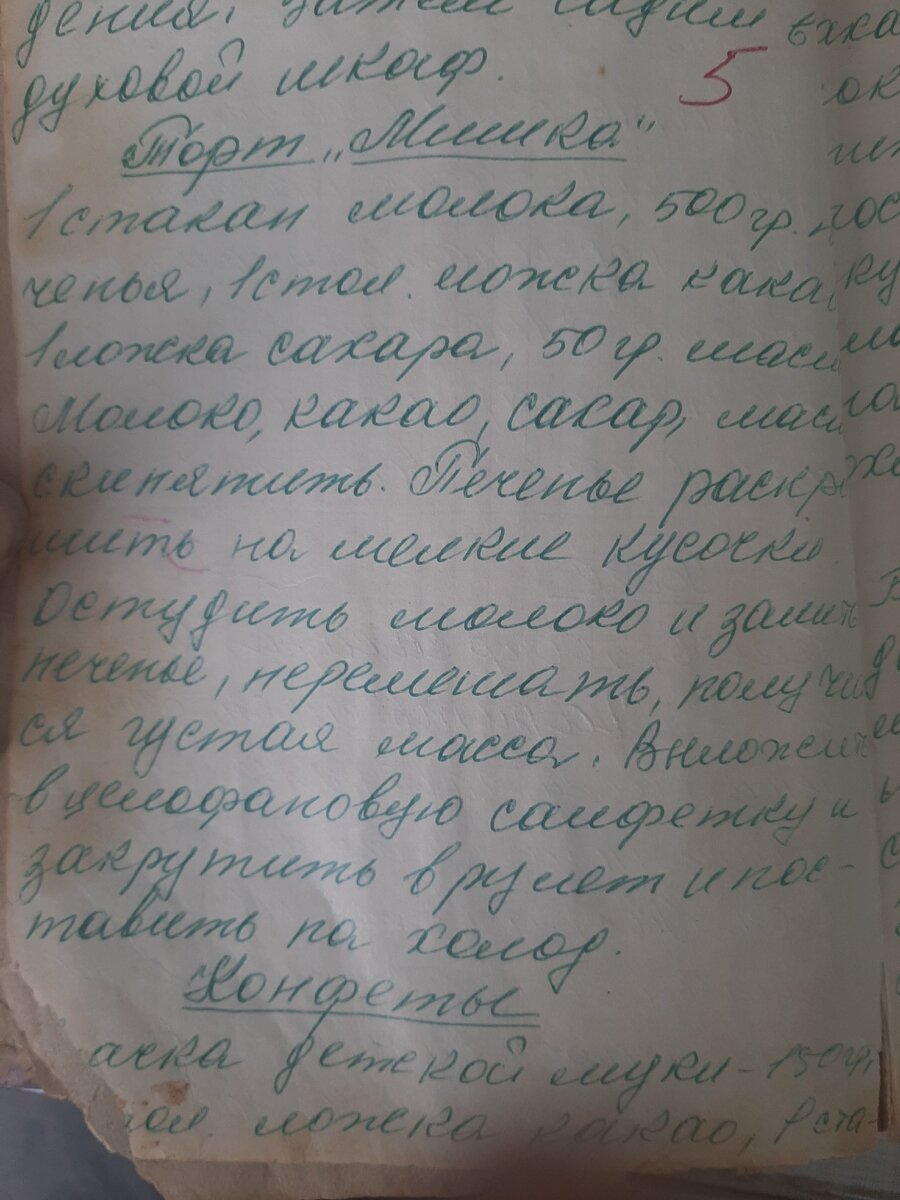 дения, затем садим в
духовой шкаф. 5
Торт „Мишка"
1 стакан молока, 500 гр.
ченья, 1 стол. ложка кака
1 ложка сахара, 50 гр. масл
Молоко, какао, сахар, масл
скипятить. Печенье раскр
шить на мелкие кусочки
Остудить молоко и залить
печенье, перемешать, получи
ся густая масса. Выложить
в целофановую салфетку и
закрутить в рулет и пос-
тавить на холод.
Конфеты
ачка детской муки - 150 гр,
тол ложка какао, 1 ста-